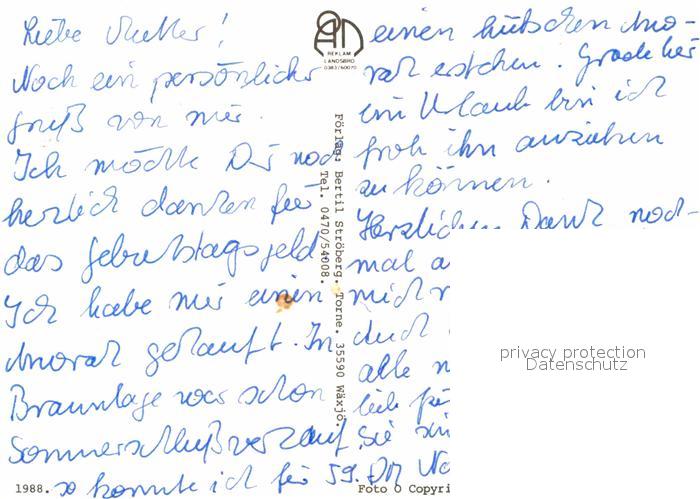 Liebe Mutter!
Noch ein persönlicher
Gruß von mir.
Ich möchte Dir noch
herzlich danken für
das Geburtstagsgeld
Ich habe mir einen
Anorak gekauft. In
Braunlage war schon
Sommerschlußverkauf
so konnte ich für 59.- DM
einen hübschen Ano-
rak estehen. Grade hier
im Urlaub bin ich
froh ihn anziehen
zu können.
Herzlichen Dank noch-
mal a
mich
auch
alle
lieb
Sie
No
REKLAM
LANDSBRO
0383/60070
Förlag: Bertil Ströberg, Torne, 35590 Wäxjö.
Tel. 0470/54008.
1988.
Foto o Copyri
privacy protection
Datenschutz